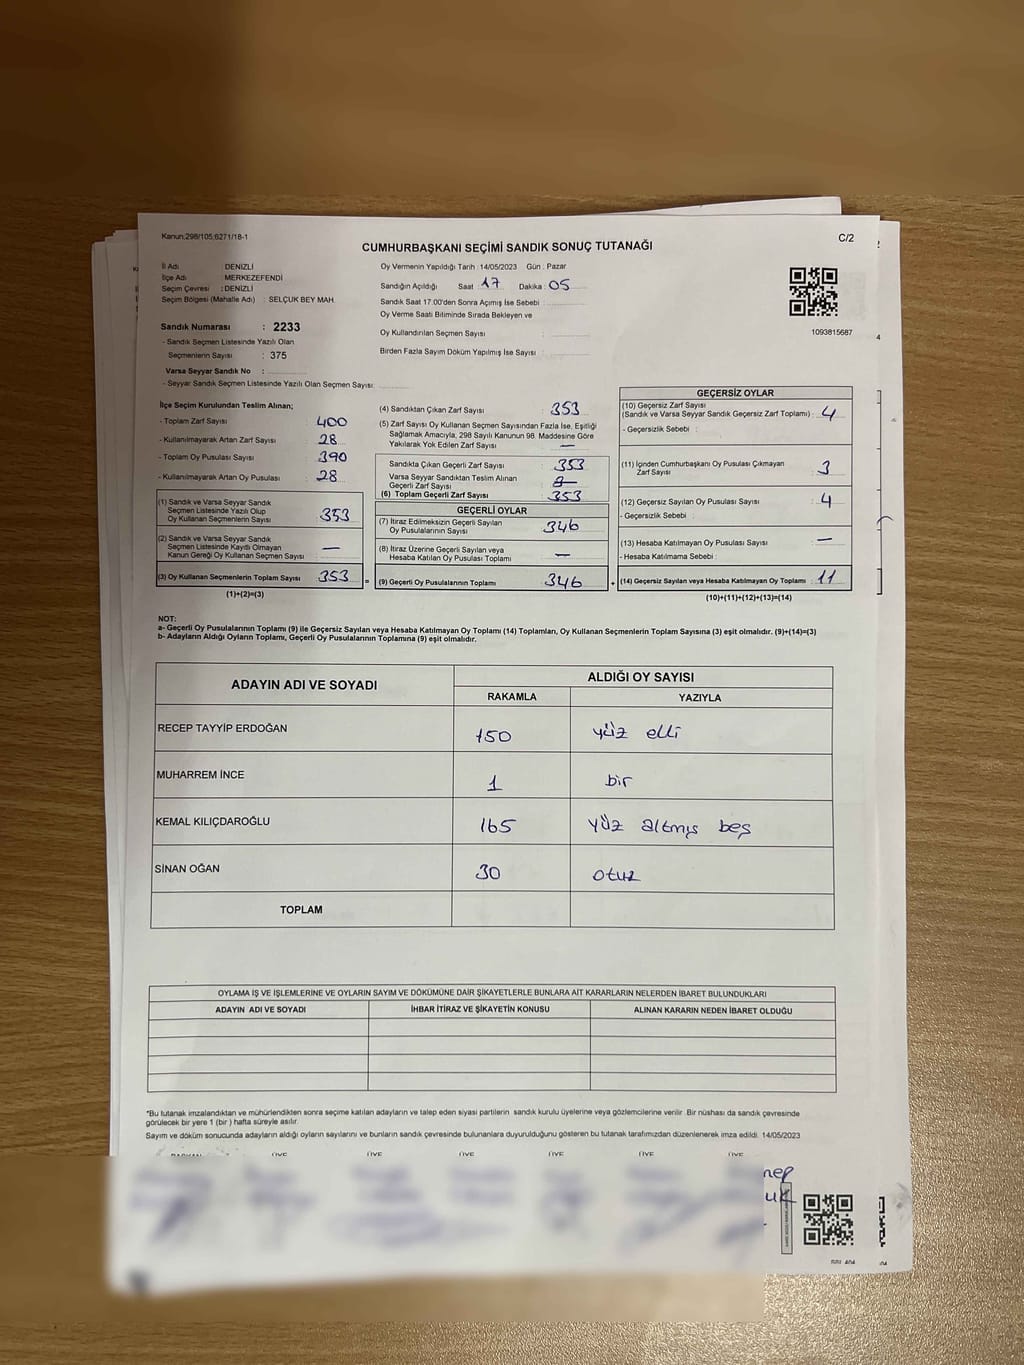 Kanun:298/105;6271/18-1
C/2
CUMHURBAŞKANI SEÇİMİ SANDIK SONUÇ TUTANAĞI
İl Adı DENİZLİ
İlçe Adı MERKEZEFENDİ
Seçim Çevresi : DENİZLİ
Seçim Bölgesi (Mahalle Adı) : SELÇUK BEY MAH.
Sandık Numarası : 2233
- Sandık Seçmen Listesinde Yazılı Olan
Seçmenlerin Sayısı : 375
Varsa Seyyar Sandık No :
- Seyyar Sandık Seçmen Listesinde Yazılı Olan Seçmen Sayısı:
Oy Vermenin Yapıldığı Tarih :14/05/2023 Gün : Pazar
Sandığın Açıldığı Saat : 17 Dakika : 05
Sandık Saat 17.00'den Sonra Açımış İse Sebebi :
Oy Verme Saati Bitiminde Sırada Bekleyen ve
Oy Kullandırılan Seçmen Sayısı :
Birden Fazla Sayım Döküm Yapılmış İse Sayısı :
1093815687
İlçe Seçim Kurulundan Teslim Alınan;
- Toplam Zarf Sayısı : 400
- Kullanılmayarak Artan Zarf Sayısı : 28
- Toplam Oy Pusulası Sayısı : 390
- Kullanılmayarak Artan Oy Pusulası : 28
(1) Sandık ve Varsa Seyyar Sandık
Seçmen Listesinde Yazılı Olup
Oy Kullanan Seçmenlerin Sayısı : 353
(2) Sandık ve Varsa Seyyar Sandık
Seçmen Listesinde Kayıtlı Olmayan
Kanun Gereği Oy Kullanan Seçmen Sayısı : —
(3) Oy Kullanan Seçmenlerin Toplam Sayısı : 353 =
(1)+(2)=(3)
(4) Sandıktan Çıkan Zarf Sayısı : 353
(5) Zarf Sayısı Oy Kullanan Seçmen Sayısından Fazla İse, Eşitliği
Sağlamak Amacıyla; 298 Sayılı Kanunun 98. Maddesine Göre
Yakılarak Yok Edilen Zarf Sayısı : —
Sandıkta Çıkan Geçerli Zarf Sayısı : 353
Varsa Seyyar Sandıktan Teslim Alınan
Geçerli Zarf Sayısı :
(6) Toplam Geçerli Zarf Sayısı : 353
GEÇERLİ OYLAR
(7) İtiraz Edilmeksizin Geçerli Sayılan
Oy Pusulalarının Sayısı : 346
(8) İtiraz Üzerine Geçerli Sayılan veya
Hesaba Katılan Oy Pusulası Toplamı : —
(9) Geçerli Oy Pusulalarının Toplamı : 346 +
GEÇERSİZ OYLAR
(10) Geçersiz Zarf Sayısı
(Sandık ve Varsa Seyyar Sandık Geçersiz Zarf Toplamı) : 4
- Geçersizlik Sebebi :
(11) İçinden Cumhurbaşkanı Oy Pusulası Çıkmayan
Zarf Sayısı : 3
(12) Geçersiz Sayılan Oy Pusulası Sayısı : 4
- Geçersizlik Sebebi :
(13) Hesaba Katılmayan Oy Pusulası Sayısı : —
- Hesaba Katılmama Sebebi :
(14) Geçersiz Sayılan veya Hesaba Katılmayan Oy Toplamı : 11
(10)+(11)+(12)+(13)=(14)
NOT:
a- Geçerli Oy Pusulalarının Toplamı (9) ile Geçersiz Sayılan veya Hesaba Katılmayan Oy Toplamı (14) Toplamları, Oy Kullanan Seçmenlerin Toplam Sayısına (3) eşit olmalıdır. (9)+(14)=(3)
b- Adayların Aldığı Oyların Toplamı, Geçerli Oy Pusulalarının Toplamına (9) eşit olmalıdır.
ADAYIN ADI VE SOYADI
ALDIĞI OY SAYISI
RAKAMLA YAZIYLA
RECEP TAYYİP ERDOĞAN 150 yüz elli
MUHARREM İNCE 1 bir
KEMAL KILIÇDAROĞLU 165 yüz altmış beş
SİNAN OĞAN 30 otuz
TOPLAM
OYLAMA İŞ VE İŞLEMLERİNE VE OYLARIN SAYIM VE DÖKÜMÜNE DAİR ŞİKAYETLERLE BUNLARA AİT KARARLARIN NELERDEN İBARET BULUNDUKLARI
ADAYIN ADI VE SOYADI İHBAR İTİRAZ VE ŞİKAYETİN KONUSU ALINAN KARARIN NEDEN İBARET OLDUĞU
*Bu tutanak imzalandıktan ve mühürlendikten sonra seçime katılan adayların ve talep eden siyasi partilerin sandık kurulu üyelerine veya gözlemcilerine verilir. Bir nüshası da sandık çevresinde
görülecek bir yere 1 (bir ) hafta süreyle asılır.
Sayım ve döküm sonucunda adayların aldığı oyların sayılarını ve bunların sandık çevresinde bulunanlara duyurulduğunu gösteren bu tutanak tarafımızdan düzenlenerek imza edildi. 14/05/2023
BAŞKAN ÜYE ÜYE ÜYE ÜYE ÜYE ÜYE